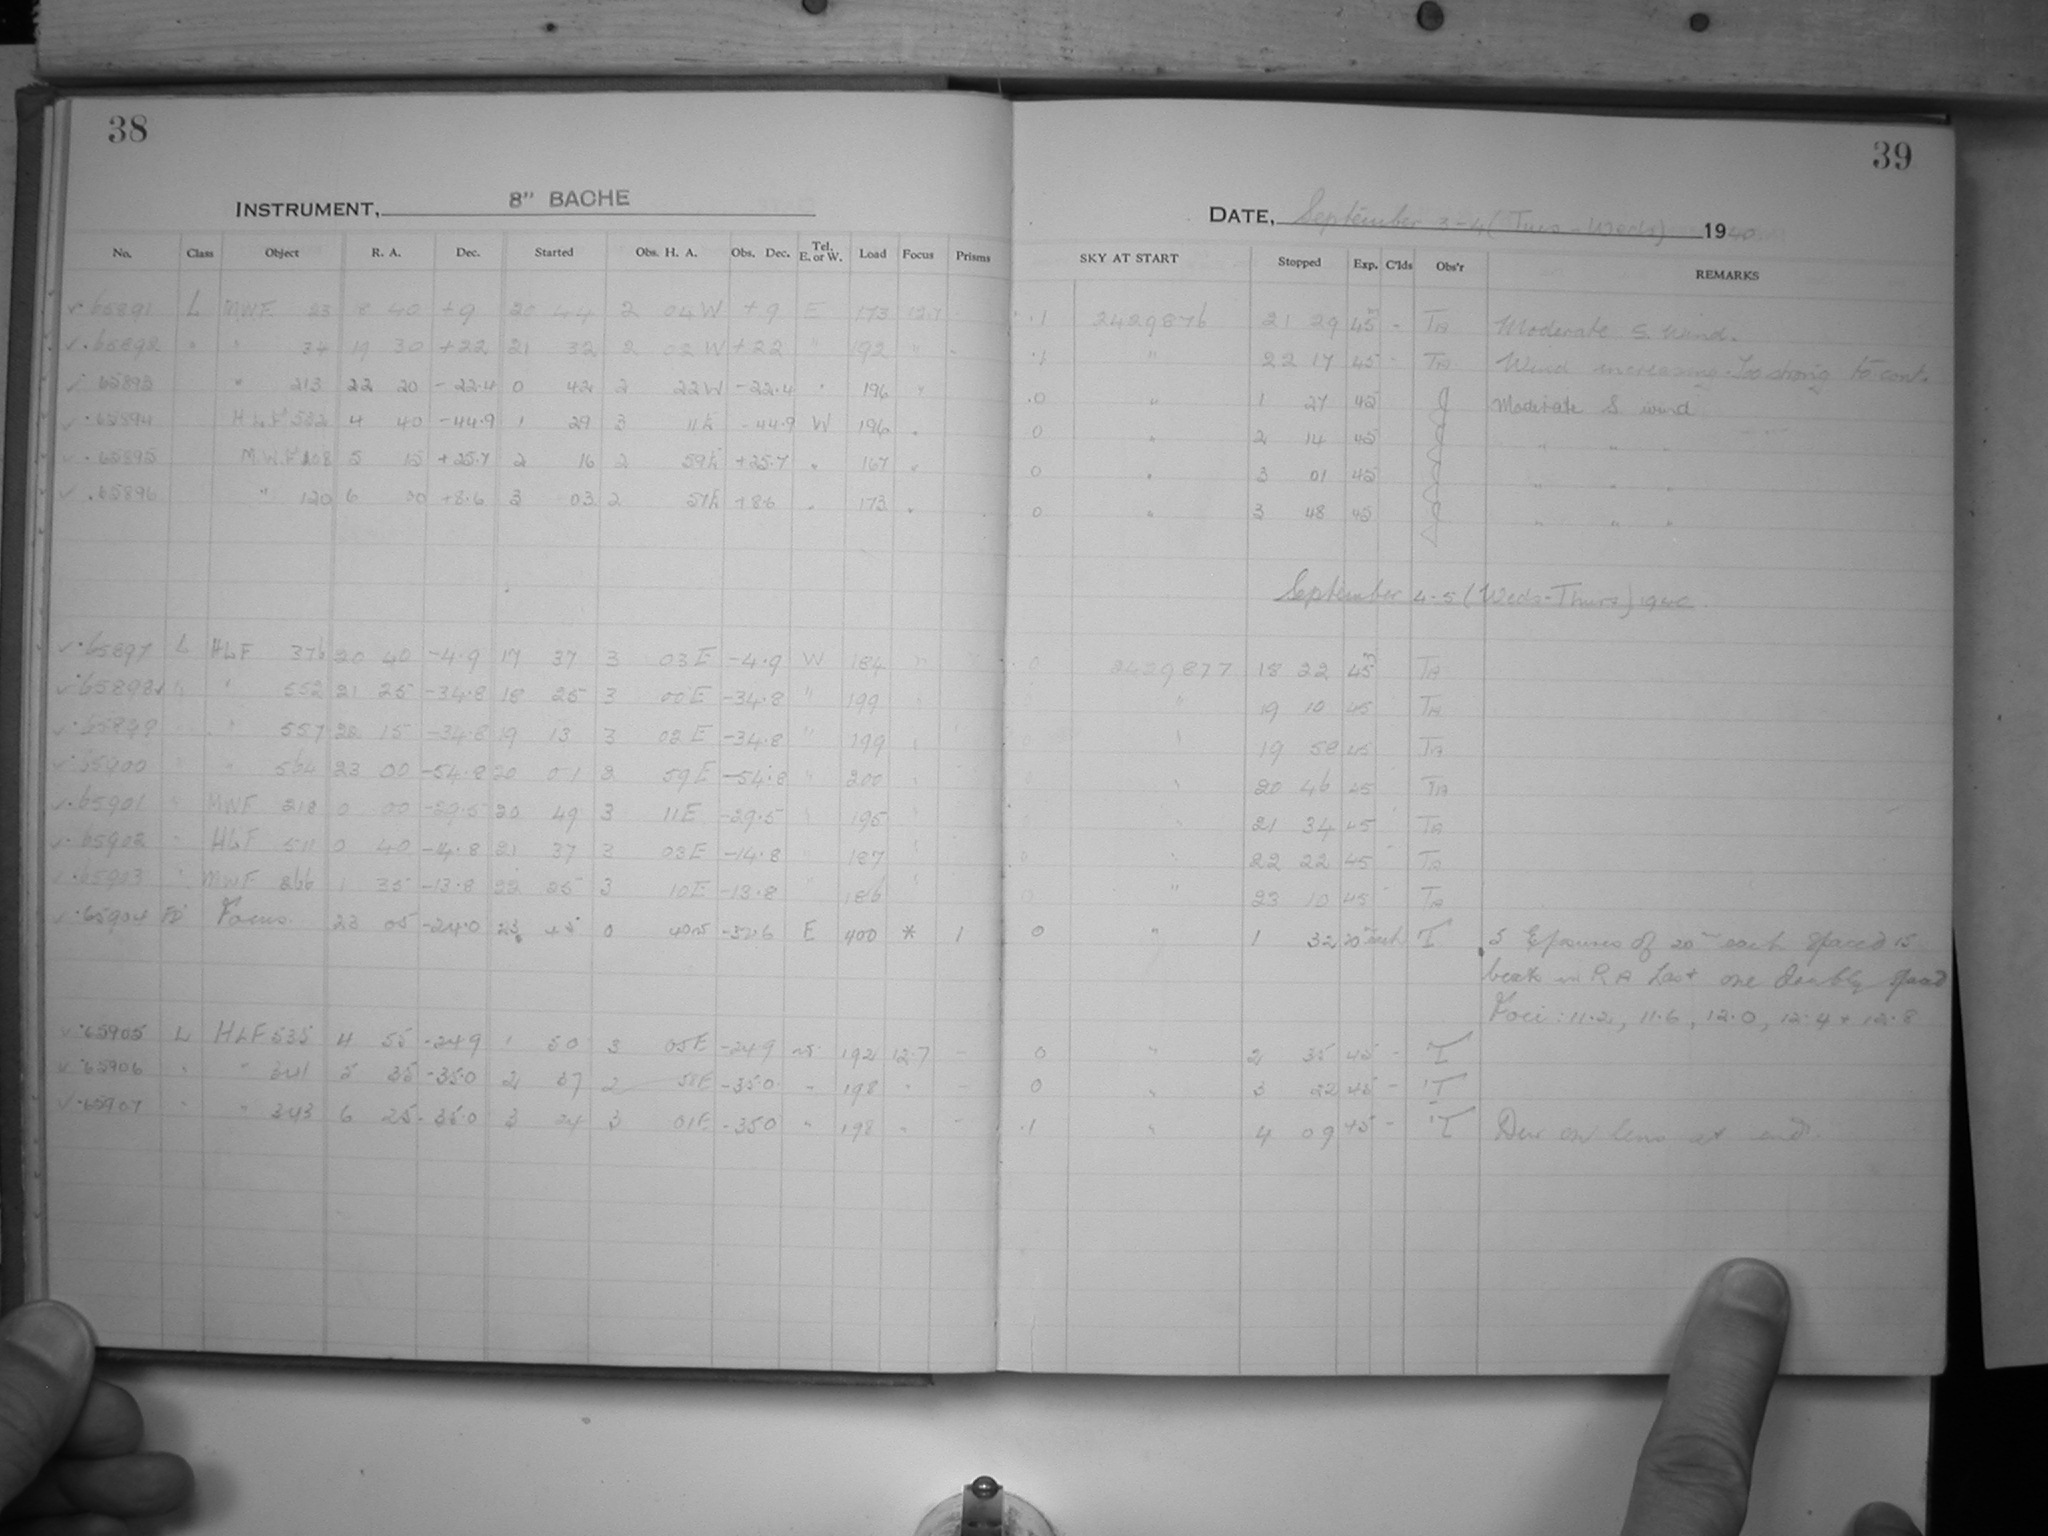 38
39
INSTRUMENT, 8" BACHE
DATE, September 3-4 (Tues-Weds) 1940
No. Class Object R. A. Dec. Started Obs. H. A. Obs. Dec. Tel. E. or W. Load Focus Prisms SKY AT START Stopped Exp. C'lds Obs'r REMARKS
65891 L MWF 23 18 40 +9 20 44 2 04 W +9 E 173 12.7 - .1 2429876 21 29 45m - TA Moderate S. wind.
65892 " " 34 19 30 +22 21 32 2 02 W +22 " 192 " - .1 " 22 17 45 - TA Wind increasing. Too strong to cont.
65893 " 213 22 20 -22.4 0 42 2 22W -22.4 " 196 " .0 " 1 27 45 J Moderate S wind
65894 HLF 532 4 40 -44.9 1 29 3 11E -44.9 W 196 " 0 " 2 14 45 J " " "
65895 MWF 108 5 15 +25.7 2 16 2 59E +25.7 " 167 " 0 " 3 01 45 J " " "
65896 " 120 6 00 +8.6 3 03 2 57E +8.6 " 173 " 0 " 3 48 45 J " " "
September 4-5 (Weds-Thurs) 1940
65897 L HLF 376 20 40 -4.9 17 37 3 03 E -4.9 W 184 " " 0 2429877 18 22 45m TA
65898 " " 552 21 25 -34.8 18 25 3 00E -34.8 " 199 " " 19 10 45 TA
65899 " " 557 22 15 -34.8 19 13 3 02 E -34.8 " 199 " " 0 " 19 58 45 TA
65900 " " 564 23 00 -54.8 20 01 2 59E -54.8 " 200 " 0 " 20 46 45 TA
65901 " MWF 218 0 00 -29.5 20 49 3 11E -29.5 " 195 " " 21 34 45 TA
65902 " HLF 511 0 40 -14.8 21 37 3 03E -14.8 " 187 " 0 " 22 22 45 TA
65903 " MWF 266 1 35 -13.8 22 25 3 10E -13.8 " 186 " 0 " 23 10 45 TA
65904 FD Focus 23 05 -24.0 23 45 0 40W E 400 * 1 0 " 1 32 20m each T 5 Exposures of 20m each spaced 15
back in RA Last one doubly spaced
Foci: 11.2, 11.6, 12.0, 12.4 + 12.8
65905 L HLF 535 4 55 -24.9 1 50 3 05E -24.9 W 192 12.7 - 0 " 2 35 45 - T
65906 " " 341 5 35 -35.0 2 37 2 58E -35.0 " 198 " - 0 " 3 22 45 - T
65907 " " 343 6 25 -35.0 3 24 3 01E -35.0 " 198 " - .1 " 4 09 45 - T Dew on lens at end.